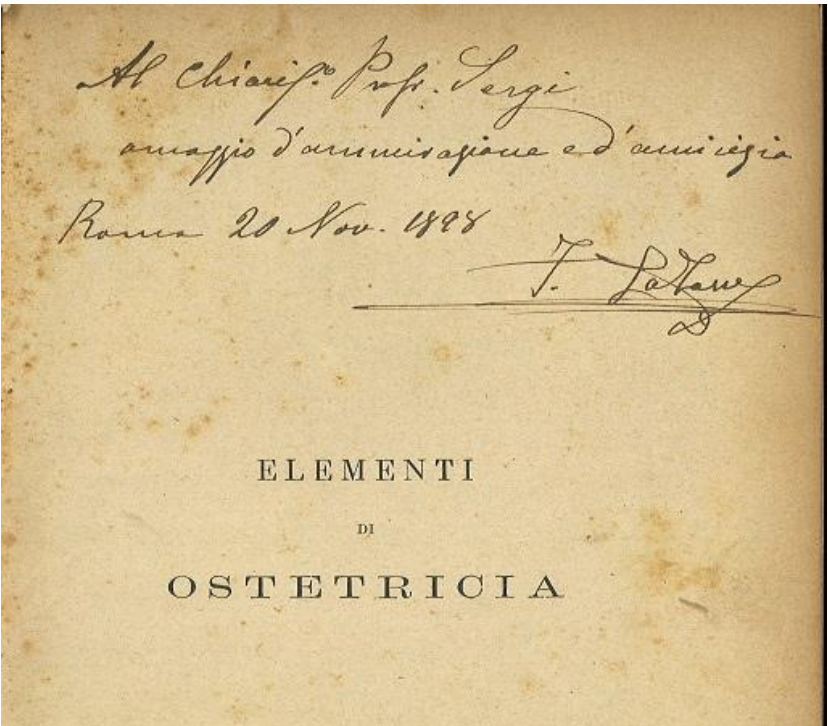 Al Chiariss.º Prof. Sergi
omaggio d'ammirazione e d'amicizia
Roma 20 Nov. 1898
F. La Torre
ELEMENTI
DI
OSTETRICIA